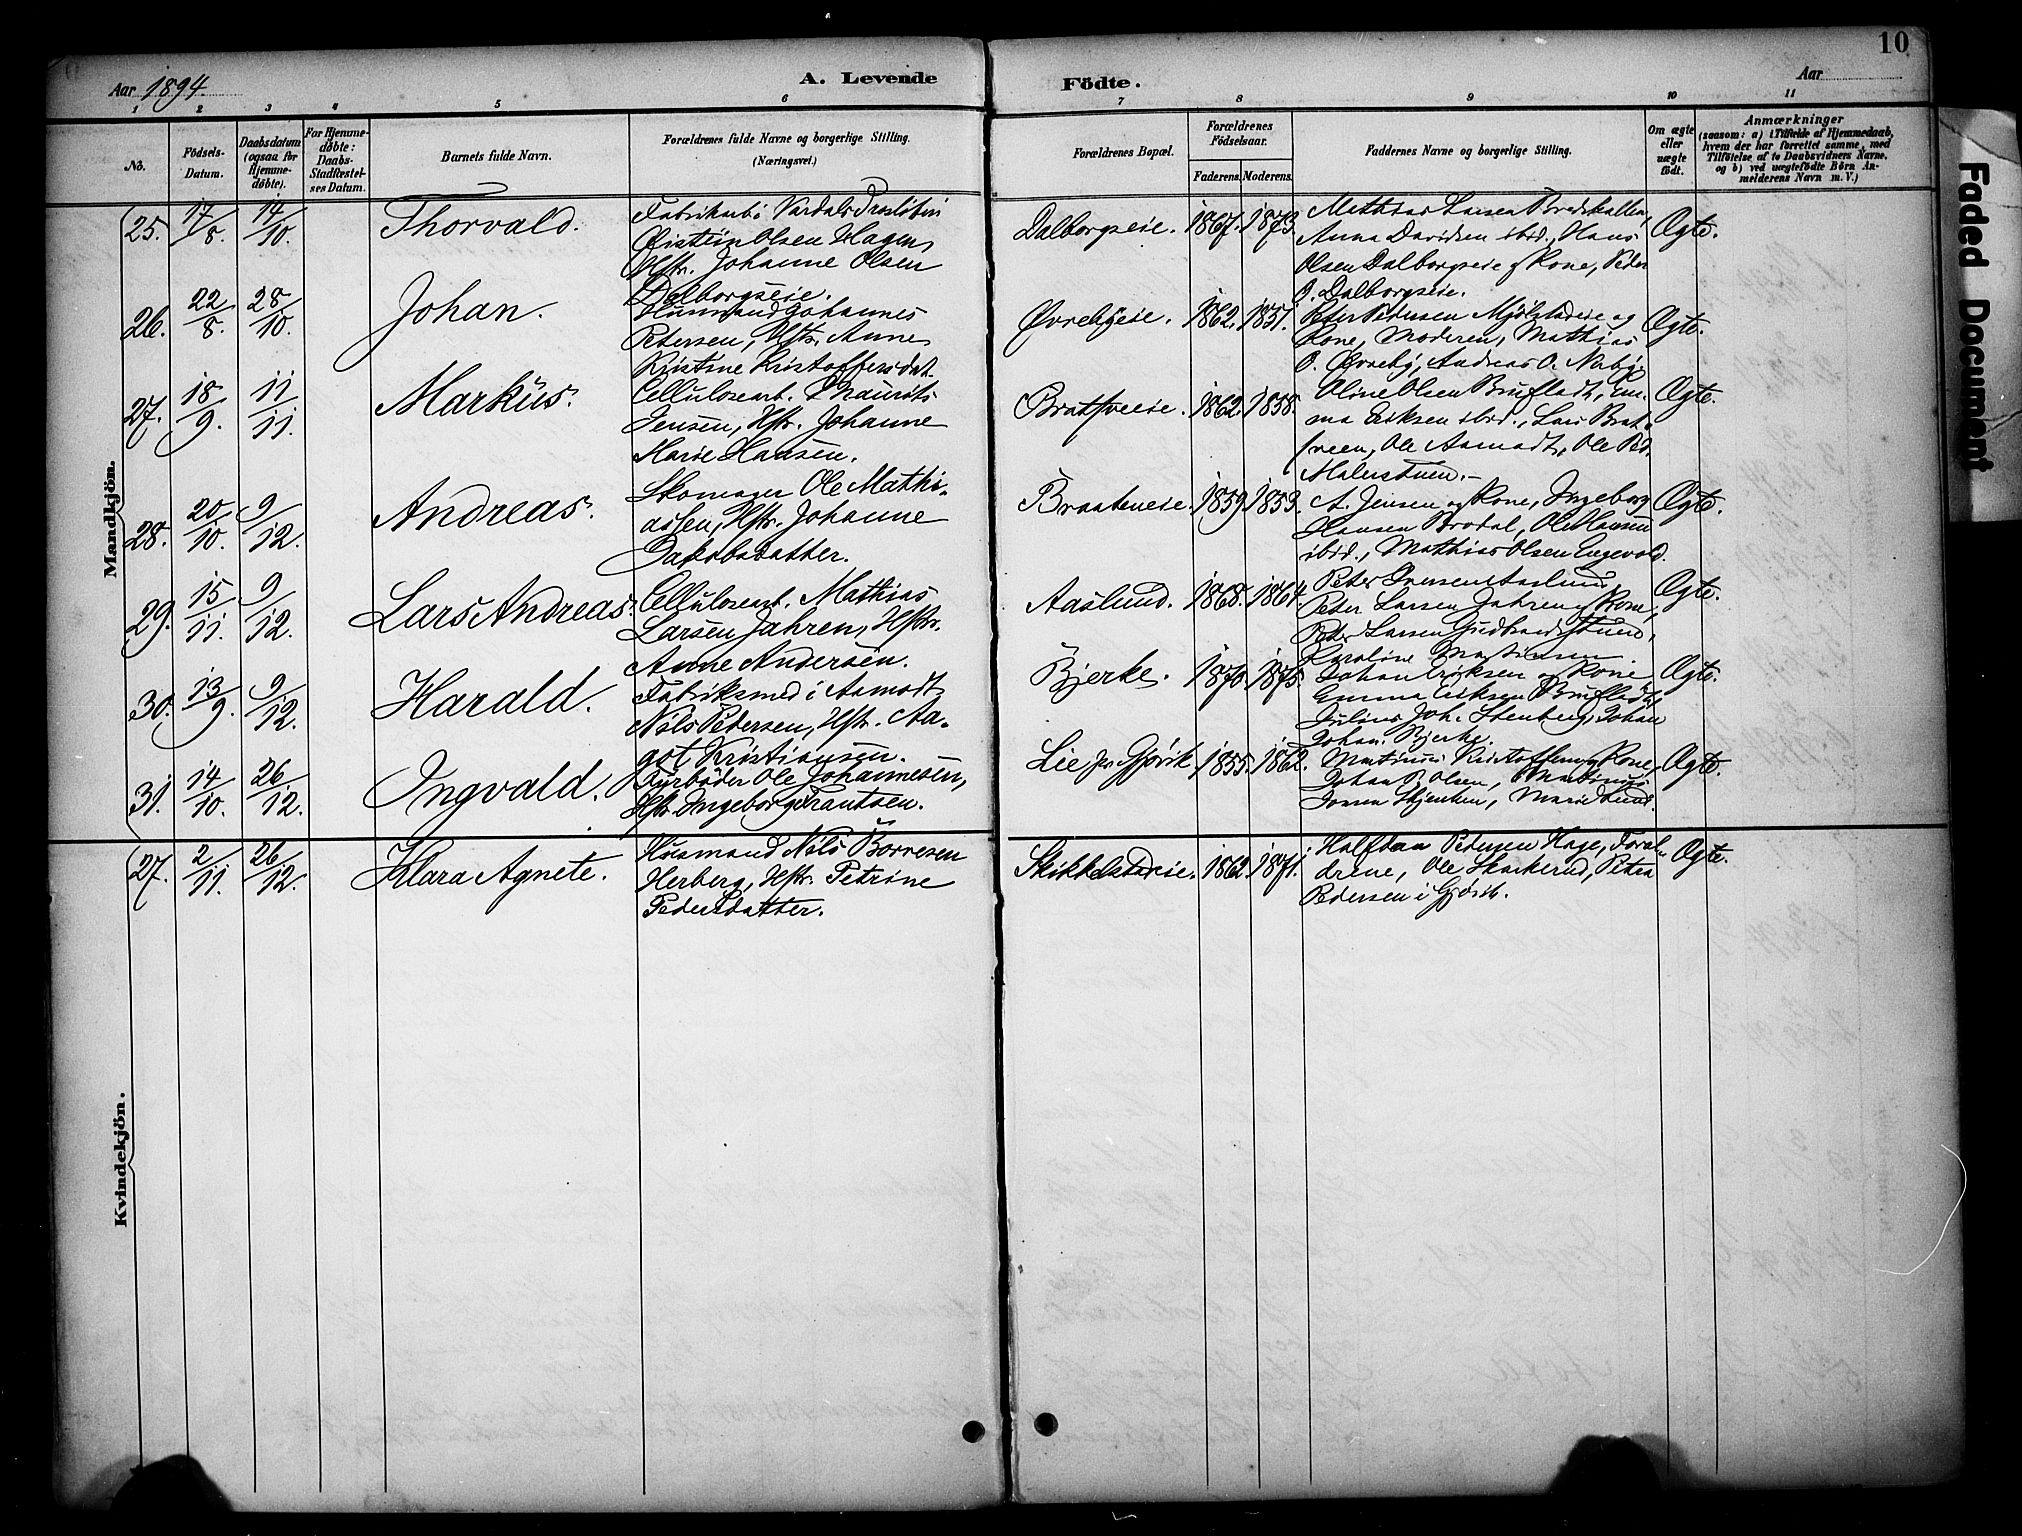 10
Aar 1894.
A. Levende
Födte.
Aar
1 2 3 4 5 6 7 8 9 10 11
No.
Födsels-
Datum.
Daabsdatum
(ogsaa for
Hjemme-
døbte).
For Hjemme-
døbte:
Daabs-
Stadfæstel-
ses Datum.
Barnets fulde Navn.
Forældrenes fulde Navne og borgerlige Stilling.
(Næringsvei.)
Forældrenes Bopæl.
Forældrenes
Födselsaar.
Faderens. Moderens.
Faddernes Navne og borgerlige Stilling.
Om ægte
eller
uægte
födt.
Anmærkninger
(saasom: a) i Tilfælde af Hjemmedaab,
hvem der har forrettet samme, med
Tilföielse af to Daabsvidners Navne,
og b) ved uægtefödte Börn An-
melderens Navn m. V.)
Mandkjön.
25. 17/8. 14/10. Thorvald.
Fabrikarb. i Vardals
Kristian Olsen Hagen,
Hstr. Johanne Olsen
Dalborgseie.
Dalborgseie. 1867. 1873.
Mathias Larsen Bredskallen,
Anna Davidsen ibid., Hans
Olsen Dalborgseie og Kone, Peder
O. Dalborgseie.
Ægte.
26. 22/8. 28/10. Johan.
Husmand Johannes
Petersen, Hstr. Anne
Kristine Kristoffersdat.
Øvrebyeie. 1862. 1851.
Peter Pedersen Mjølstadeie og
Kone, Moderen, Mathias
O. Øvreby, Andreas O. Nerby.
Ægte.
27. 18/9. 11/11. Markus.
Cellulosearb. Mauritz
Jensen, Hstr. Johanne
Marie Hansen.
Bratsveeie. 1862. 1858.
Oline Olsen Brufladt, Em-
ma Eriksen ibid., Lars Brat-
sveen, Ole Aamodt, Ole Ped.
Malerstuen.-
Ægte.
28. 20/10. 9/12. Andreas.
Skomager Ole Mathi-
assen, Hstr. Johanne
Jakobsdatter.
Braateneie. 1859. 1853.
A. Jensen og Kone, Ingeborg
Hansen Brodal, Ole Hansen
ibid., Mathias Olsen Engevold.
Ægte.
29. 15/11. 9/12. Lars Andreas.
Cellulosearb. Mathias
Larsen Jahren, Hstr.
Anne Andersen.
Aaslund. 1868. 1864.
Peter Iversen Aaslund,
Peter Larsen Jahren og Kone,
Peter Larsen Gudbrandsstuen,
Karoline Martinsen
Ægte.
30. 13/9. 9/12. Harald.
Fabriksmed i Aamodt
Nils Pedersen, Hstr. Aa-
got Kristiansen.
Bjerke. 1870. 1875.
Johan Eriksen og Kone
Emma Eriksen Brufladt,
Julius Joh. Stenberg, Johan
Johan. Bjerke.
Ægte.
31. 14/10. 26/12. Ingvald.
Ole Johannesen,
Hstr. Ingeborg Frantsen.
Lie pr Gjøvik 1855. 1862.
Martinus Kristoffersen og Kone,
Johan P. Olsen, Martinus
Jonsen Skjenken, Marie Lund.
Ægte.
Kvindekjön.
27. 2/11. 26/12. Klara Agnete.
Husmand Nils Borresen
Herberg, Hstr. Petrine
Pedersdatter.
Skikkelstadeie. 1862. 1871.
Halfdan Pedersen Hage, Foræl-
drene, Ole Skarkerud, Petra
Pedersen i Gjøvik.
Ægte.
Faded Document